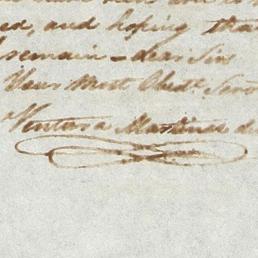 ed, and hoping tha
remain – dear Sir
Your Most Obedt. Serv
Ventura Martinez de